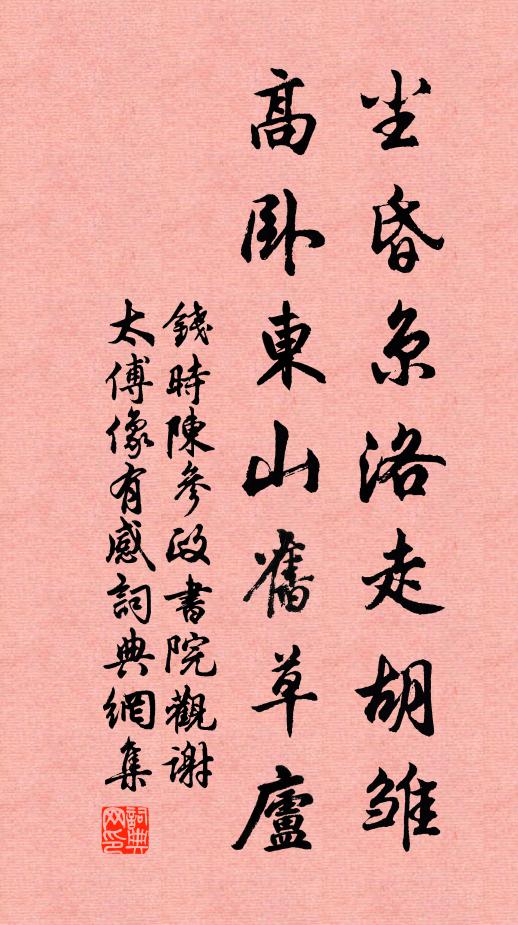 尘昏京洛走胡雏
高卧東山舊草廬
錢時陳參政書院觀謝
太傅像有感詞典網集
詞典网印